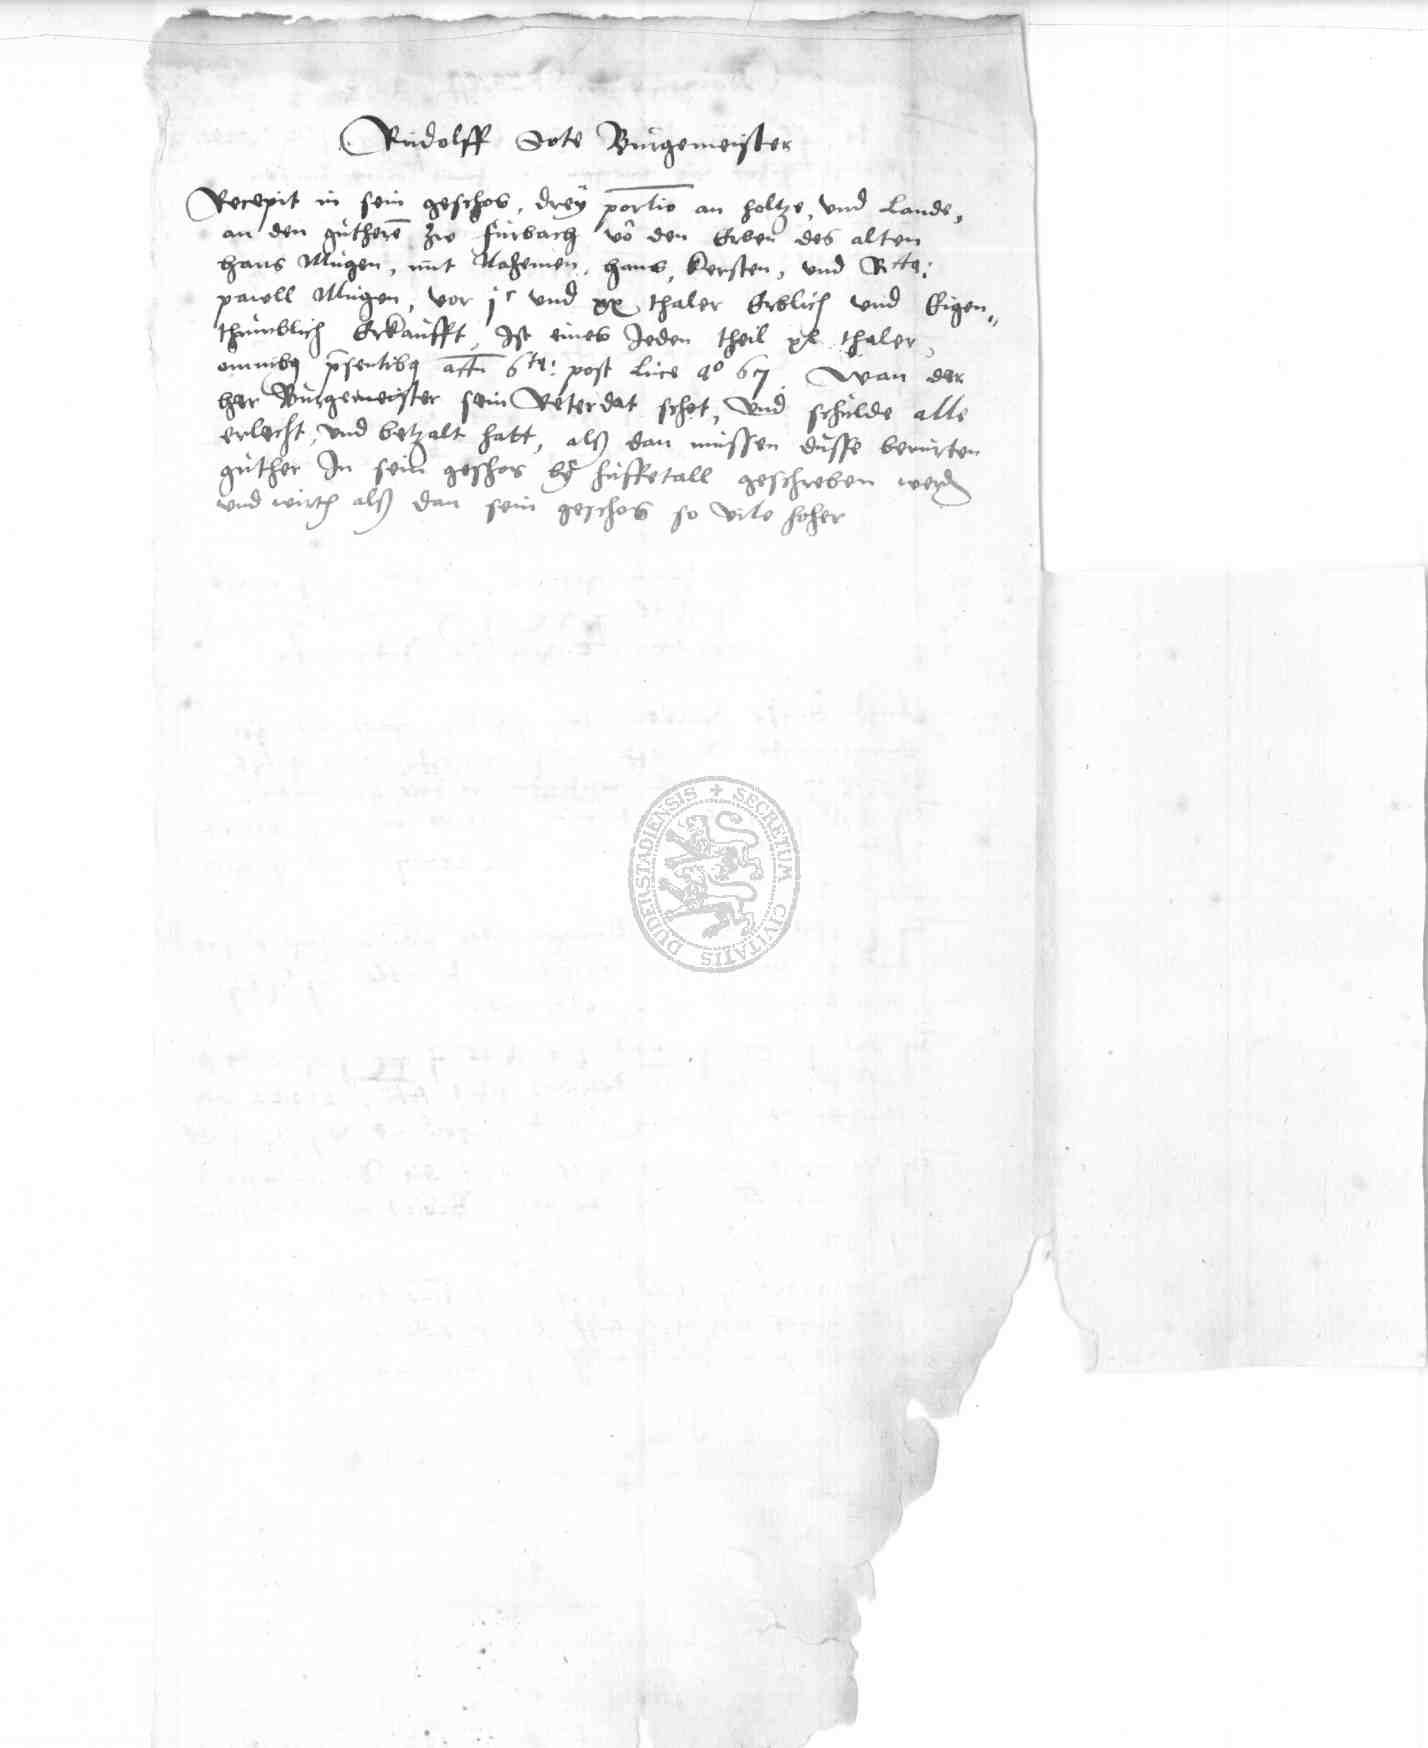 Rudolff Sote Burgemeister
Recepit in sein geschos, drey portio an holtze, und Lande,
an den gutherē zw furbach vō den Erben des alten
Hans Mugen, mit Nahemen, Hans, Kersten, und
pawell Mugen, vor jc und xx thaler Erblich und Eigen„
thumblich Erkaufft, Ist eines Jeden theil xl thaler,
omnibq p̄sentibq actū 6ta: post Luce ao 67 Wan der
her Burgemeister sein schot, und schulde alle
erlecht, und betzalt hatt, alß dan mussen dusse berurten
guther In sein geschos by huffetall geschreben werdē
und wirth alß dan sein geschos so vile hoher
SECRETUM CIVITATIS DUDERSTADIENSIS